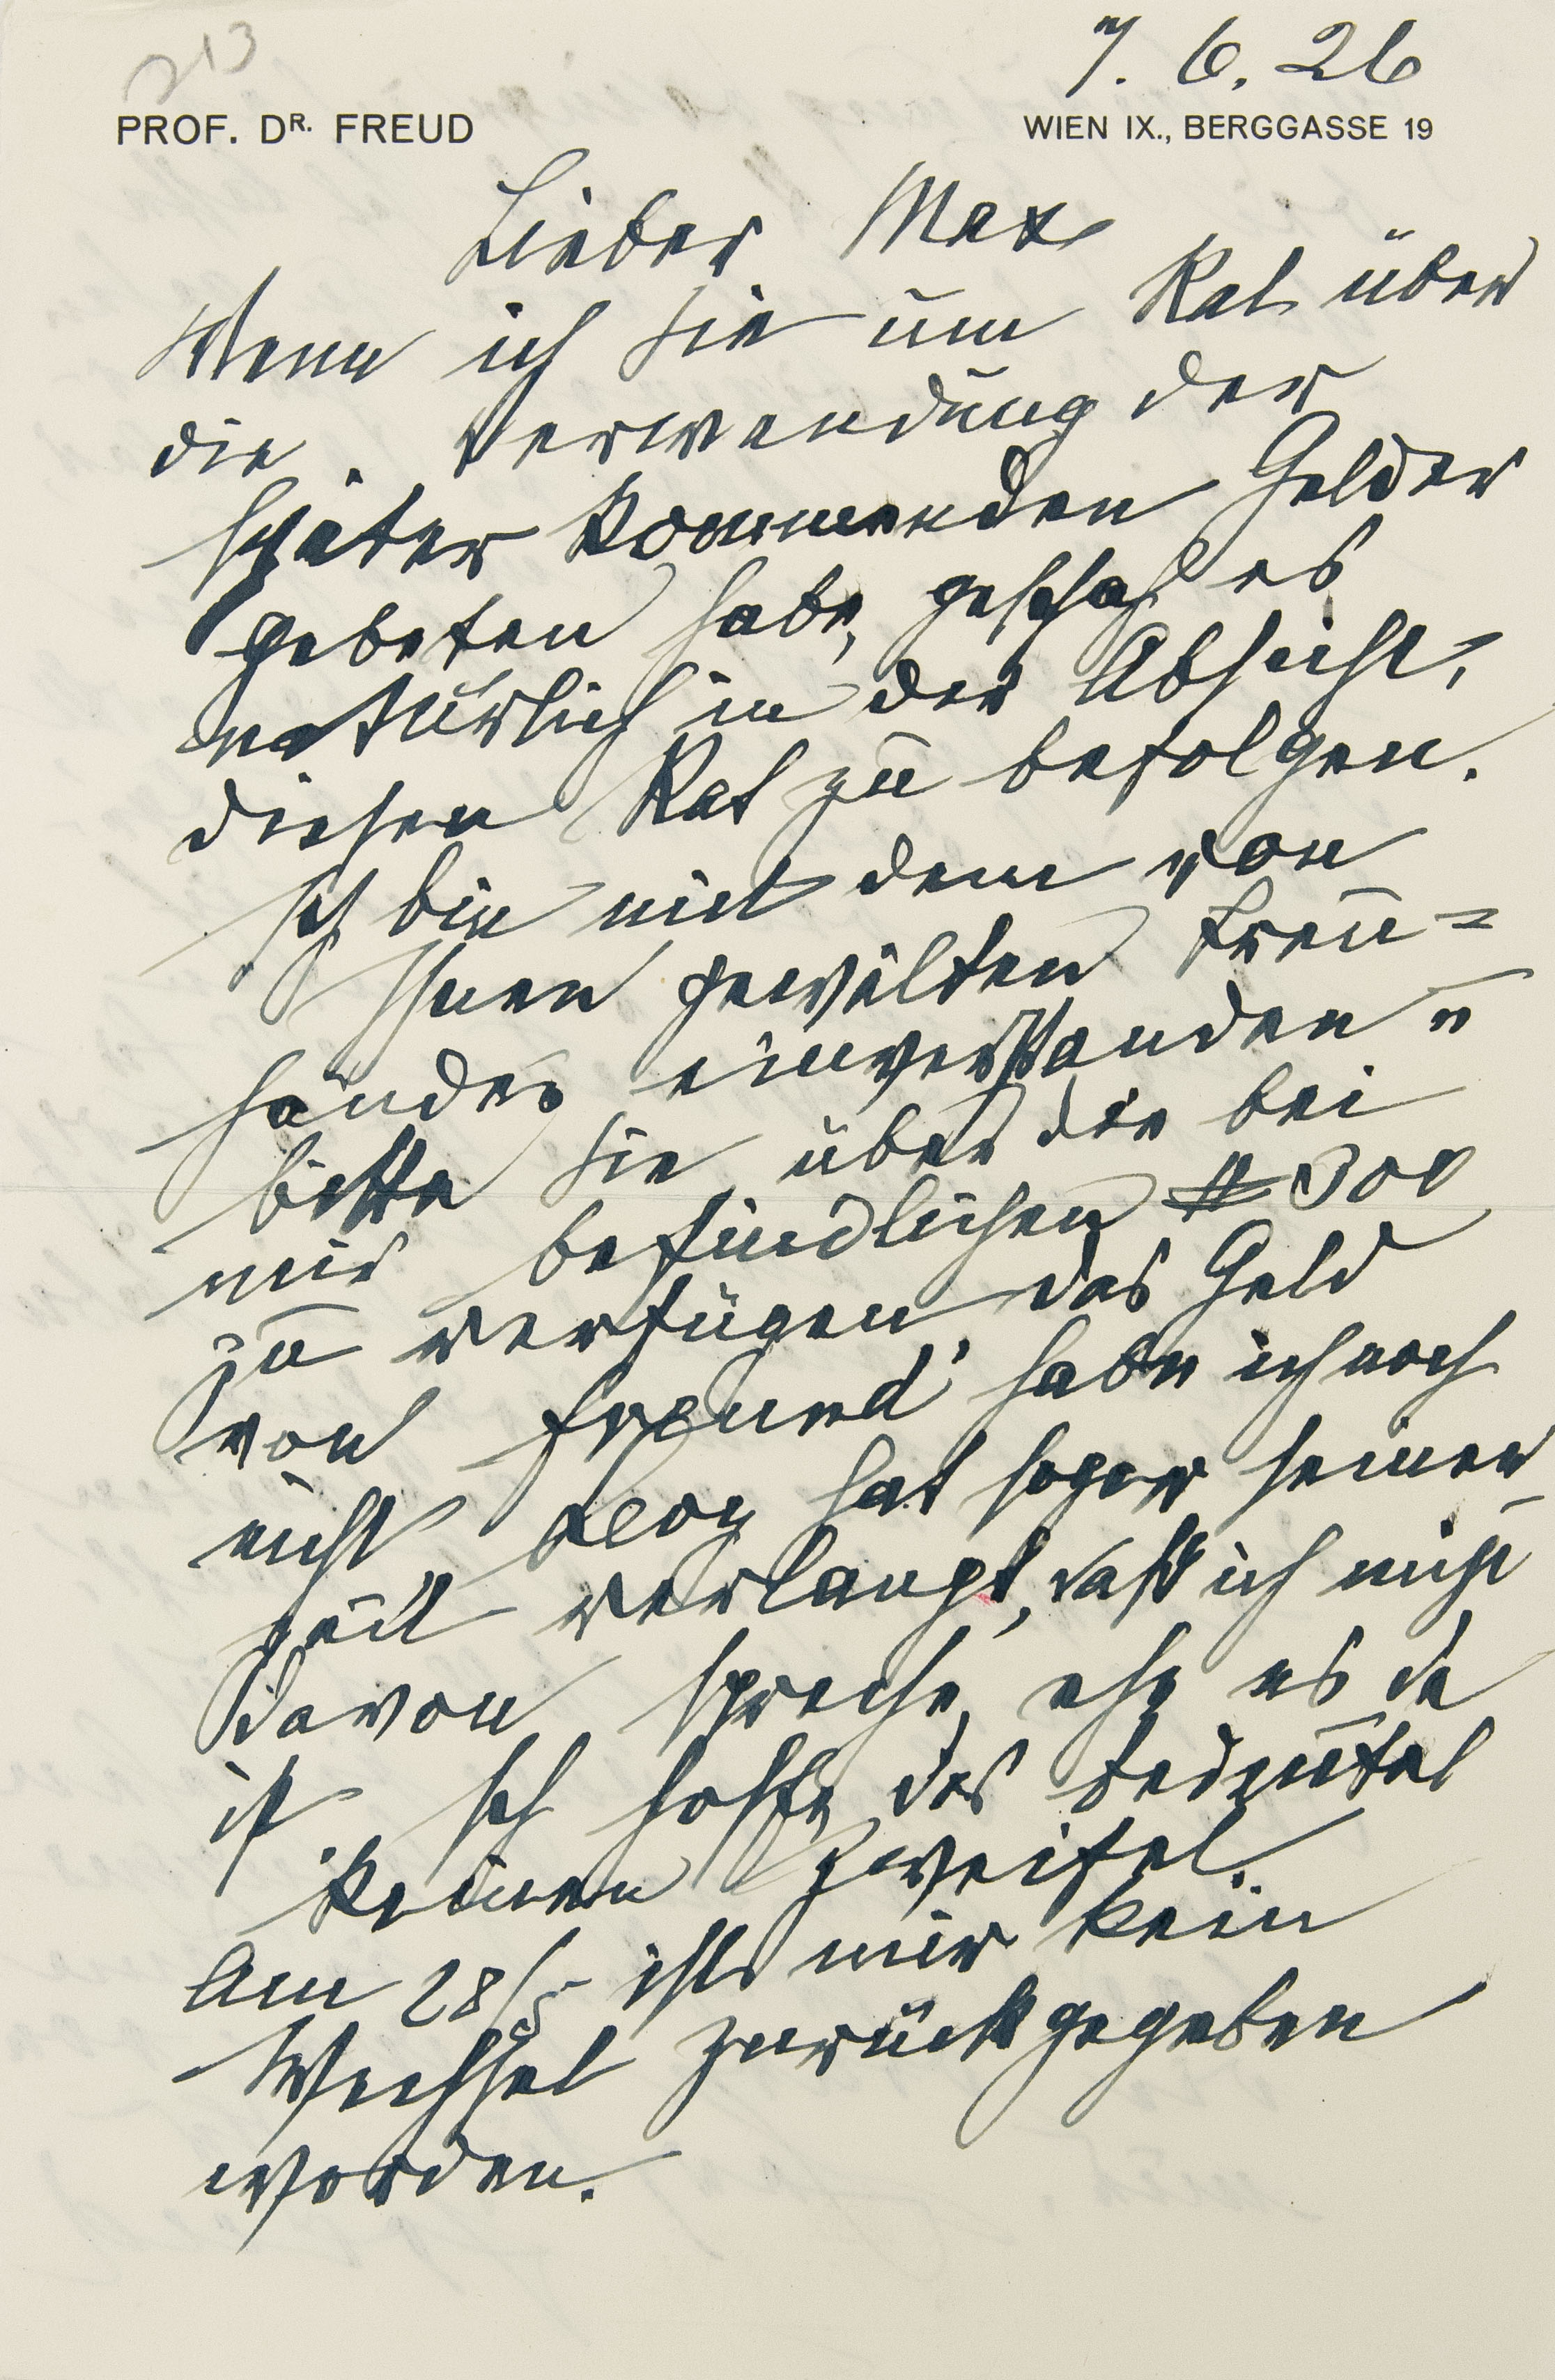 213
7. 6. 26
PROF. DR. FREUD
WIEN IX., BERGGASSE 19
Lieber Max
Wenn ich Sie um Rat über
die Verwendung der
später kommenden Gelder
gebeten habe, geschah es
natürlich in der Absicht,
diesen Rat zu befolgen.
Ich bin mit dem von
Ihnen gewälten Treu=
händer einverstanden u
bitte Sie, über die bei
mir befindlichen # 300
zu verfügen, das Geld
von Freund habe ich noch
nicht. hat sogar seiner
zeit verlangt, daß ich nicht
davon spreche, ehe es da
ist. Ich hoffe, das bedeutet
keinen Zweifel.
Am 28/5 ist mir kein
Wechsel zurückgegeben
worden.